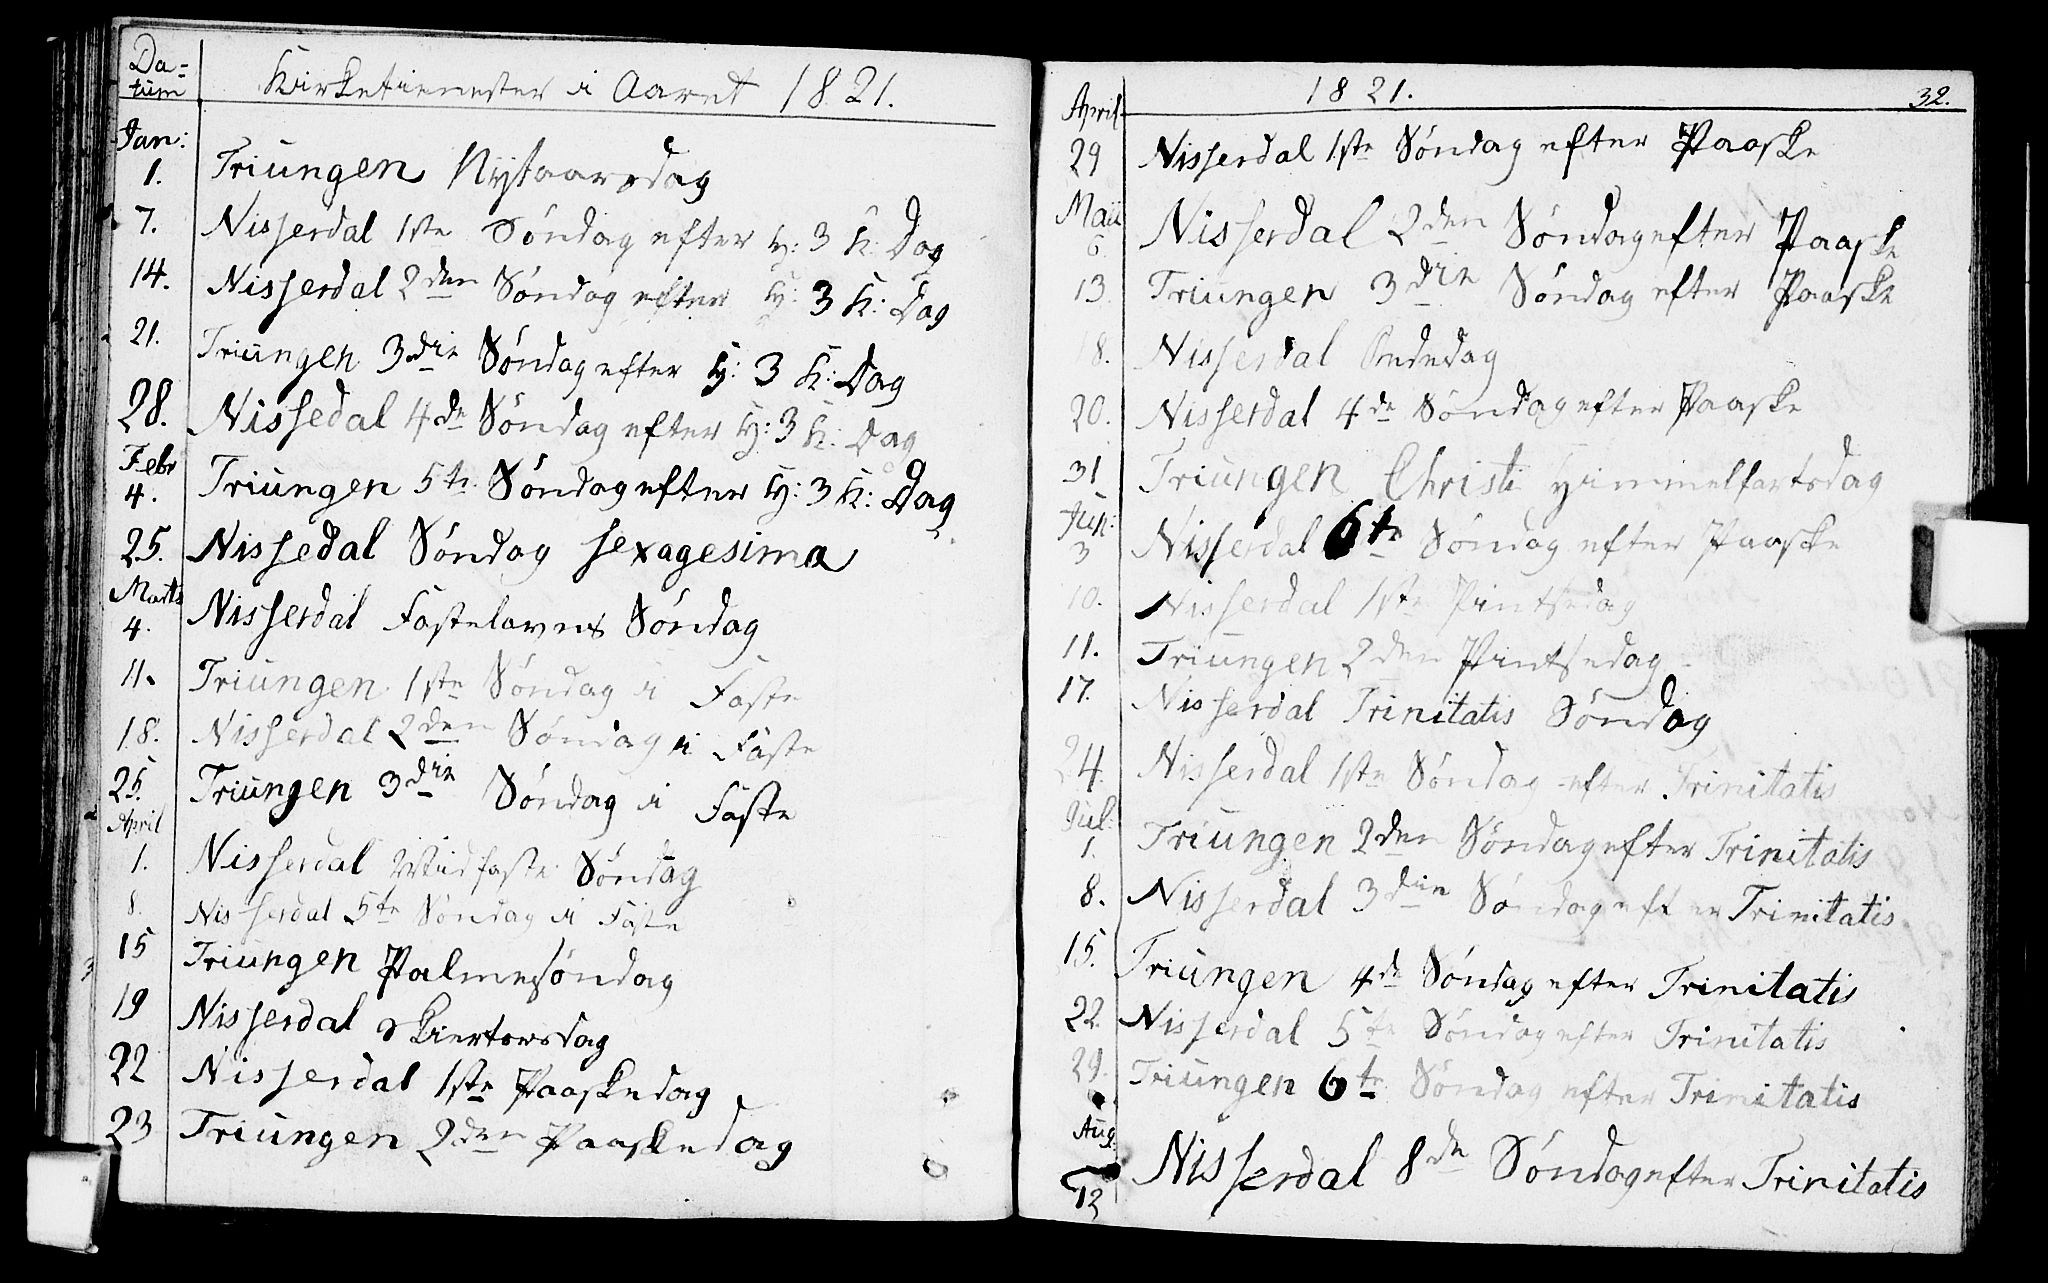 Da=
tum
Kirketienester i Aaret 1821.
Jan:
1. Triungen Nytaarsdag
7. Nisserdal 1ste Søndag efter H: 3 K: Dag
14. Nisserdal 2den Søndag efter H: 3 K: Dag
21. Triungen 3die Søndag efter H: 3 K: Dag
28. Nissedal 4de Søndag efter H: 3 K: Dag
Febr
4. Triungen 5te Søndag efter H: 3 K: Dag
25. Nissedal Søndag Sexagesima
Marts
4. Nisserdal Fastelavns Søndag
11. Triungen 1ste Søndag i Faste
18. Nisserdal 2den Søndag i Faste
25. Triungen 3die Søndag i Faste
April
1. Nisserdal Midfaste Søndag
8. Nisserdal 5te Søndag i Faste
15 Triungen Palmesøndag
19 Nisserdal Skiertorsdag
22 Nisserdal 1ste Paaskedag
23 Triungen 2den Paaskedag
1821. 32.
April
29 Nisserdal 1ste Søndag efter Paaske
Maii
6 Nisserdal 2den Søndag efter Paaske
13 Triungen 3die Søndag efter Paaske
18. Nisserdal Bededag
20. Nisserdal 4de Søndag efter Paaske
31 Triungen Christi Himmelfartsdag
Jun:
3 Nisserdal 6te Søndag efter Paaske
10. Nisserdal 1ste Pintsedag
11. Triungen 2den Pintsedag
17. Nisserdal Trinitatis Søndag
24. Nisserdal 1ste Søndag efter Trinitatis
Jul:
1. Triungen 2den Søndag efter Trinitatis
8. Nisserdal 3die Søndag efter Trinitatis
15. Triungen 4de Søndag efter Trinitatis
22. Nisserdal 5te Søndag efter Trinitatis
29. Triungen 6te Søndag efter Trinitatis
Aug:
12 Nisserdal 8de Søndag efter Trinitatis